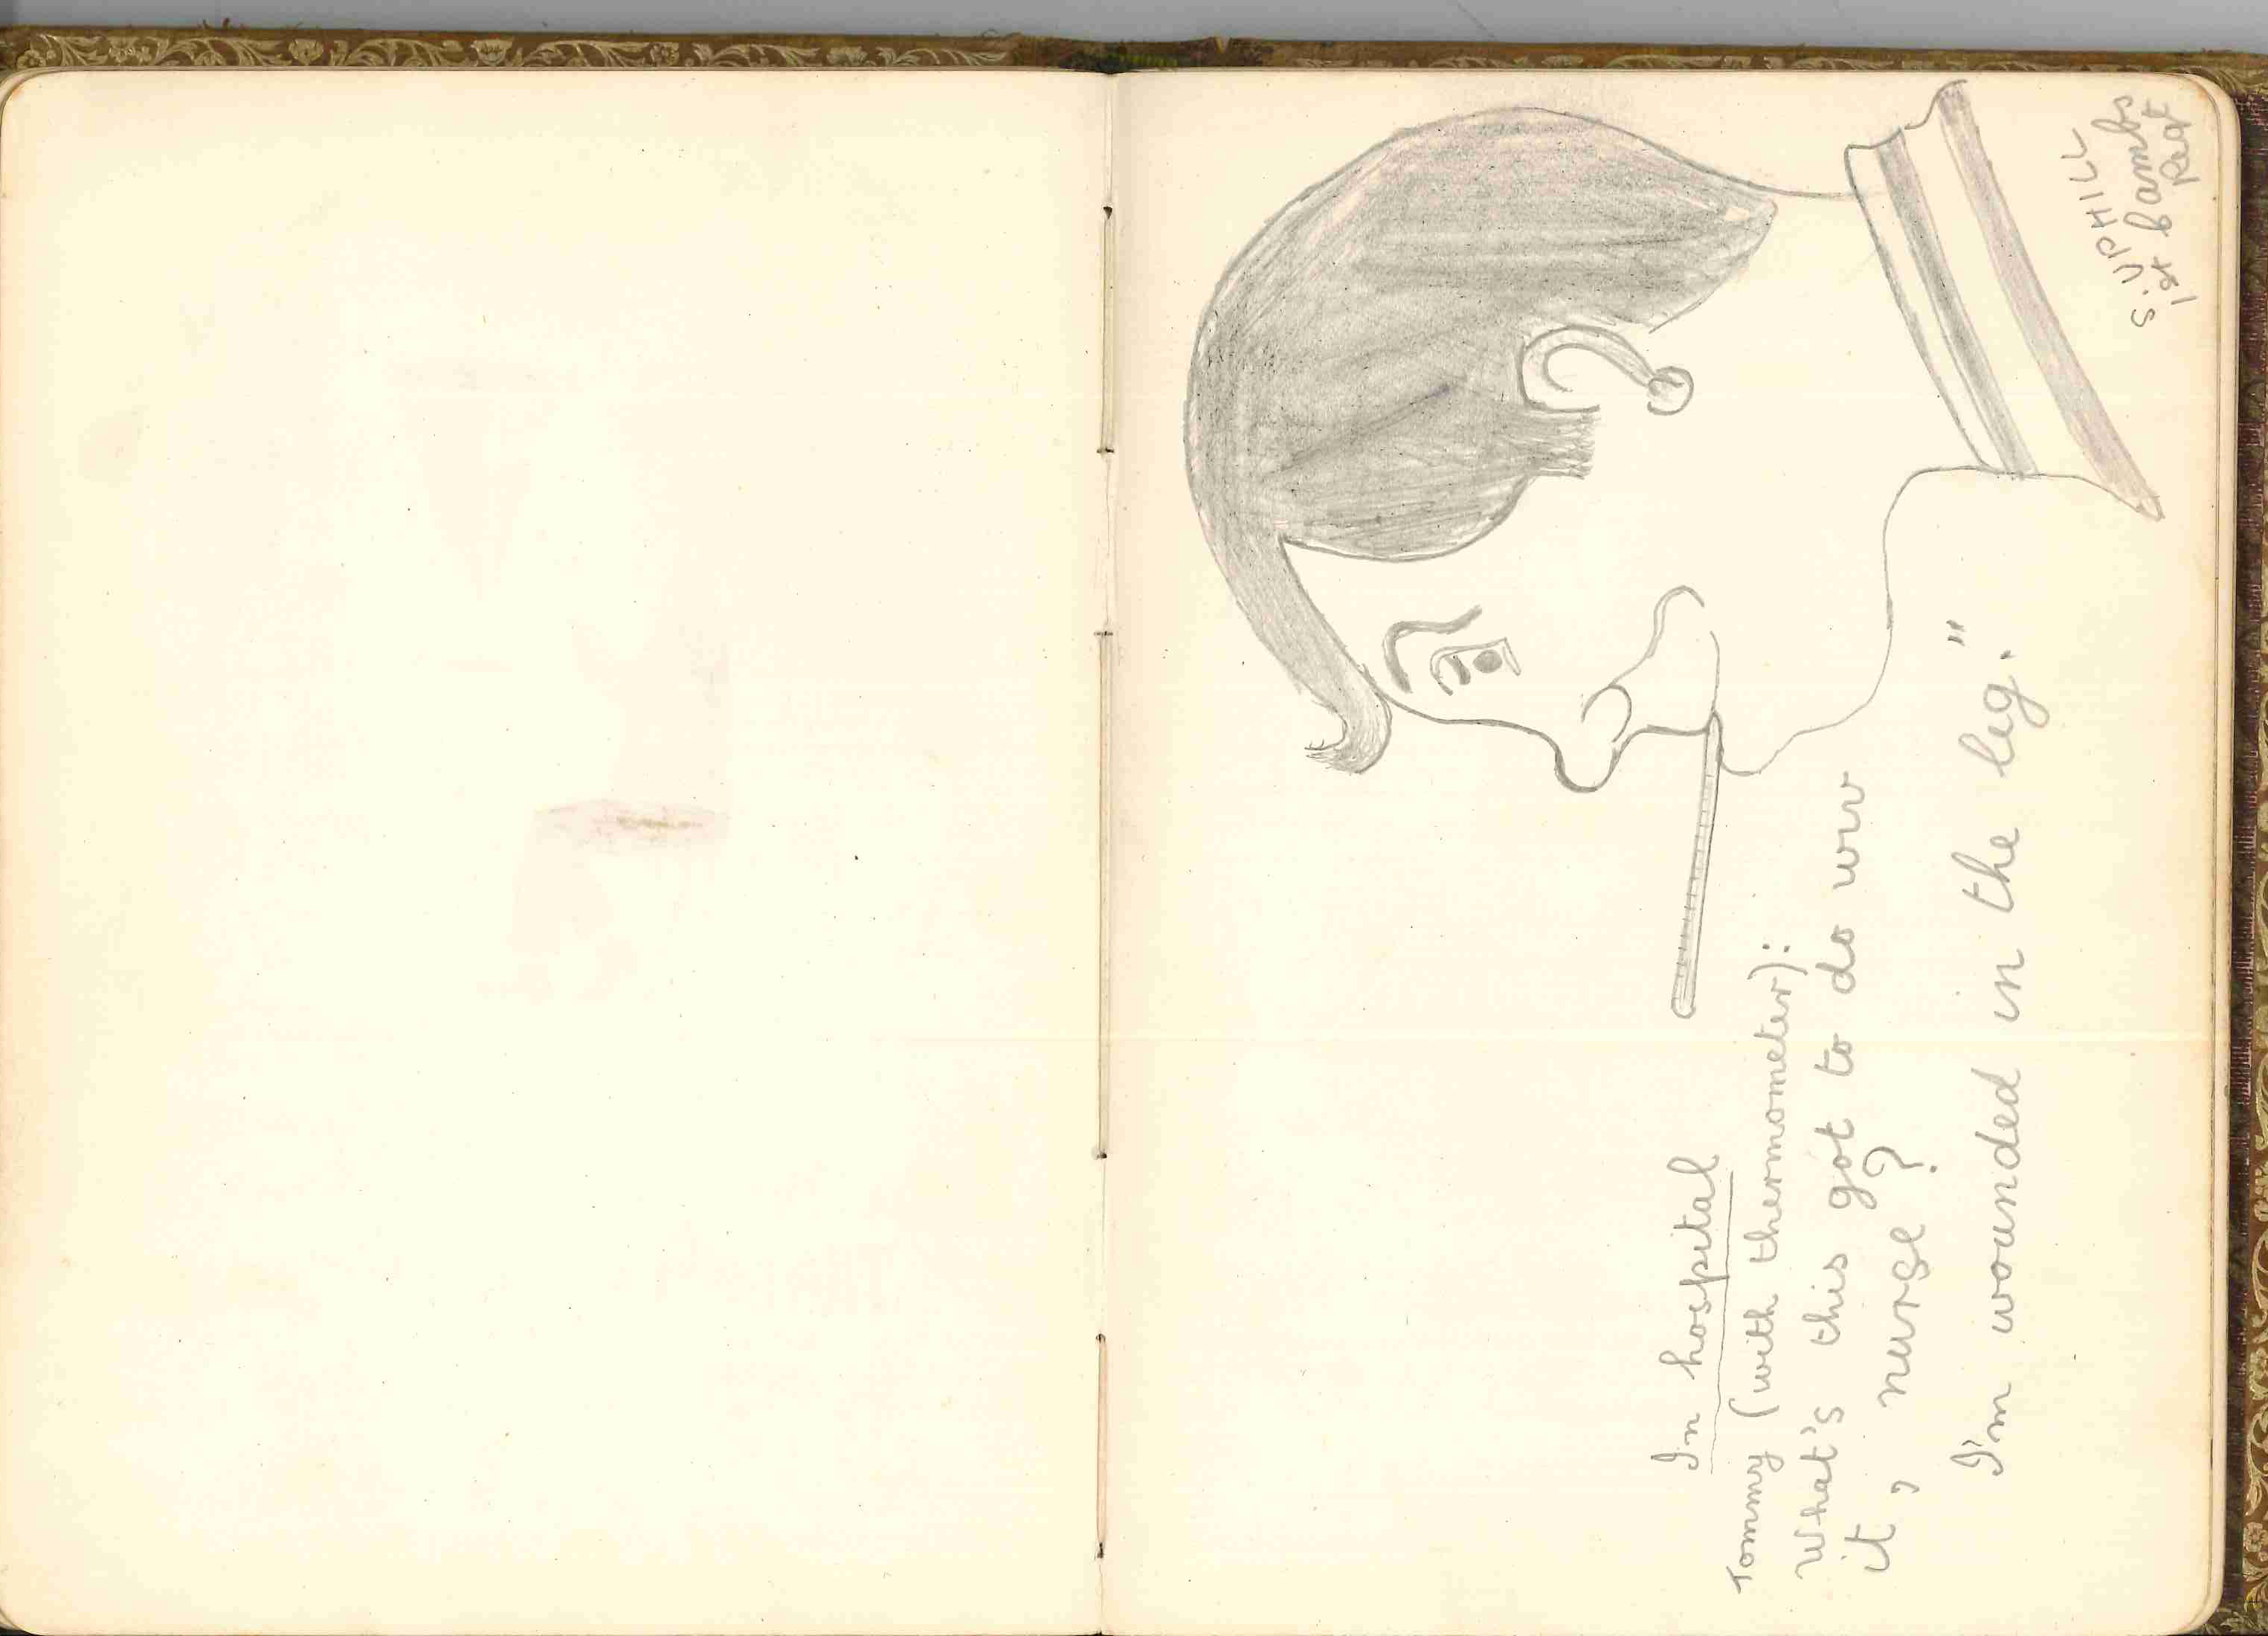 In hospital
Tommy (with thermometer):
What's this got to do wiv
it, nurse?
I'm wounded in the leg."
S. UPHILL
1st Cambs
Regt